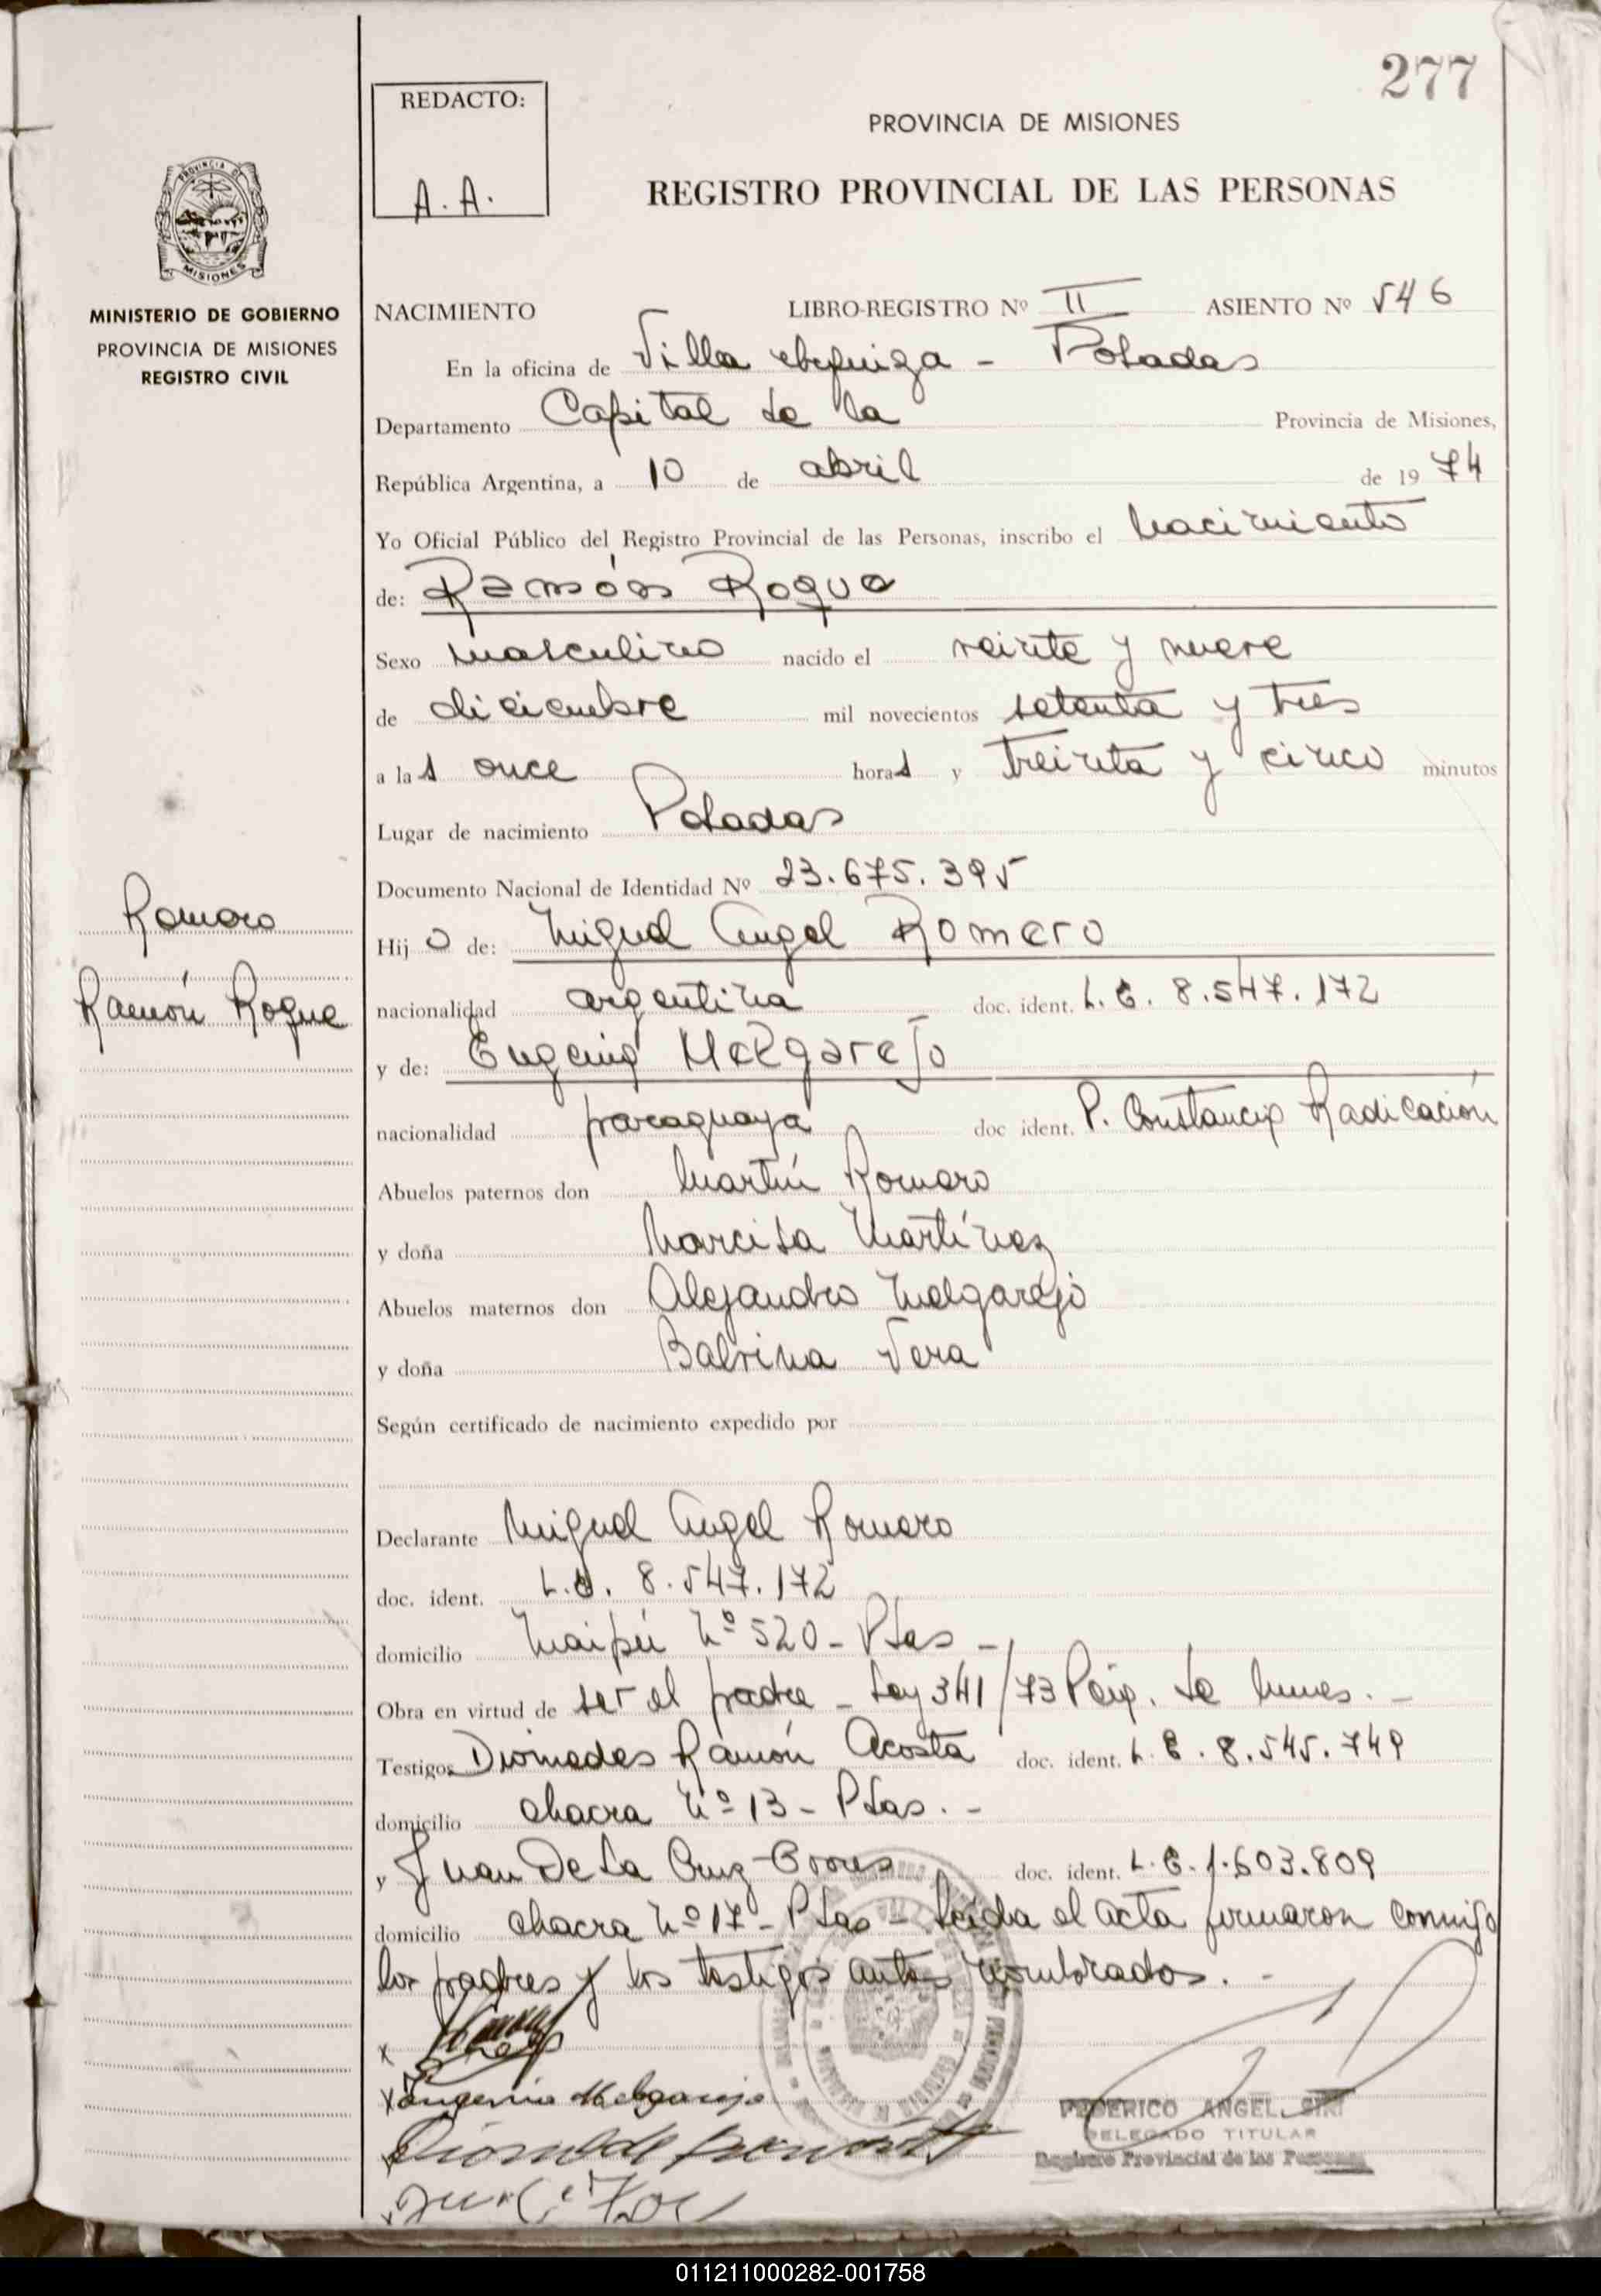 277
REDACTO:
A. A.
PROVINCIA DE MISIONES
REGISTRO PROVINCIAL DE LAS PERSONAS
PROVINCIA DE
MISIONES
MINISTERIO DE GOBIERNO
PROVINCIA DE MISIONES
REGISTRO CIVIL
NACIMIENTO LIBRO-REGISTRO Nº II ASIENTO Nº 546
En la oficina de Villa - Posadas
Departamento Capital de la Provincia de Misiones,
República Argentina, a 10 de abril de 1974
Yo Oficial Público del Registro Provincial de las Personas, inscribo el nacimiento
de: Ramón Roque
Sexo masculino nacido el veinte y nueve
de diciembre mil novecientos setenta y tres
a las once horas y treinta y cinco minutos
Lugar de nacimiento Posadas
Documento Nacional de Identidad Nº 23.675.395
Romero
Hijo de: Miguel Angel Romero
Ramón Roque
nacionalidad argentina doc. ident. L. E. 8.547.172
y de: Eugenia Melgarejo
nacionalidad paraguaya doc ident. P. Constancia Radicación
Abuelos paternos don Martín Romero
y doña Narcisa Martínez
Abuelos maternos don Alejandro Melgarejo
y doña Balvina Vera
Según certificado de nacimiento expedido por
Declarante Miguel Angel Romero
doc. ident. L.E. 8.547.172
domicilio Maipú Nº 520 - Pdas -
Obra en virtud de ser el padre - Ley 341/73
Testigos Diomedes Ramón Acosta doc. ident. L. E. 8.545.749
domicilio chacra Nº 13 - Pdas. -
y Juan De La Cruz doc. ident. L. E. 1.603.809
domicilio chacra Nº 17 - Pdas - Leída el acta firmaron conmigo
los padres y los testigos antes nombrados. -
x
x Eugenia Melgarejo
FEDERICO ANGEL SIRI
DELEGADO TITULAR
Registro Provincial de las Personas
011211000282-001758